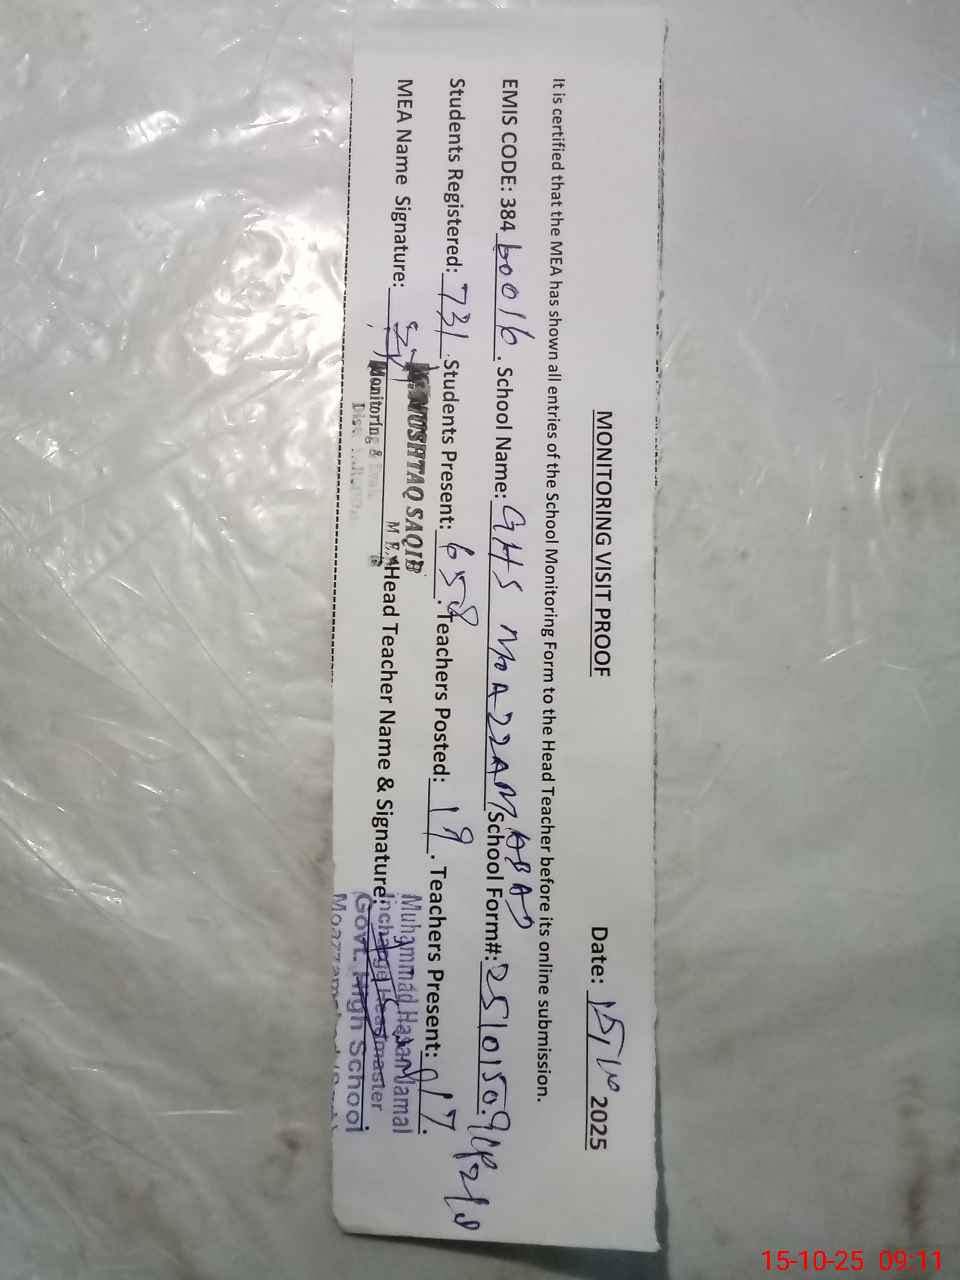 MONITORING VISIT PROOF
Date: 15/10 2025
It is certified that the MEA has shown all entries of the School Monitoring Form to the Head Teacher before its online submission.
EMIS CODE: 38460016. School Name: GHS MOAZZAMABAD School Form#:
Students Registered: 731 Students Present: 658. Teachers Posted: 19. Teachers Present: 017.
MUSHTAQ SAQIB
MEA Name Signature: Head Teacher Name & Signature:
M.E.A
Monitoring &
Muhammad Hasan Jamal
Incharge Headmaster
Govt. High School
15-10-25 09:11